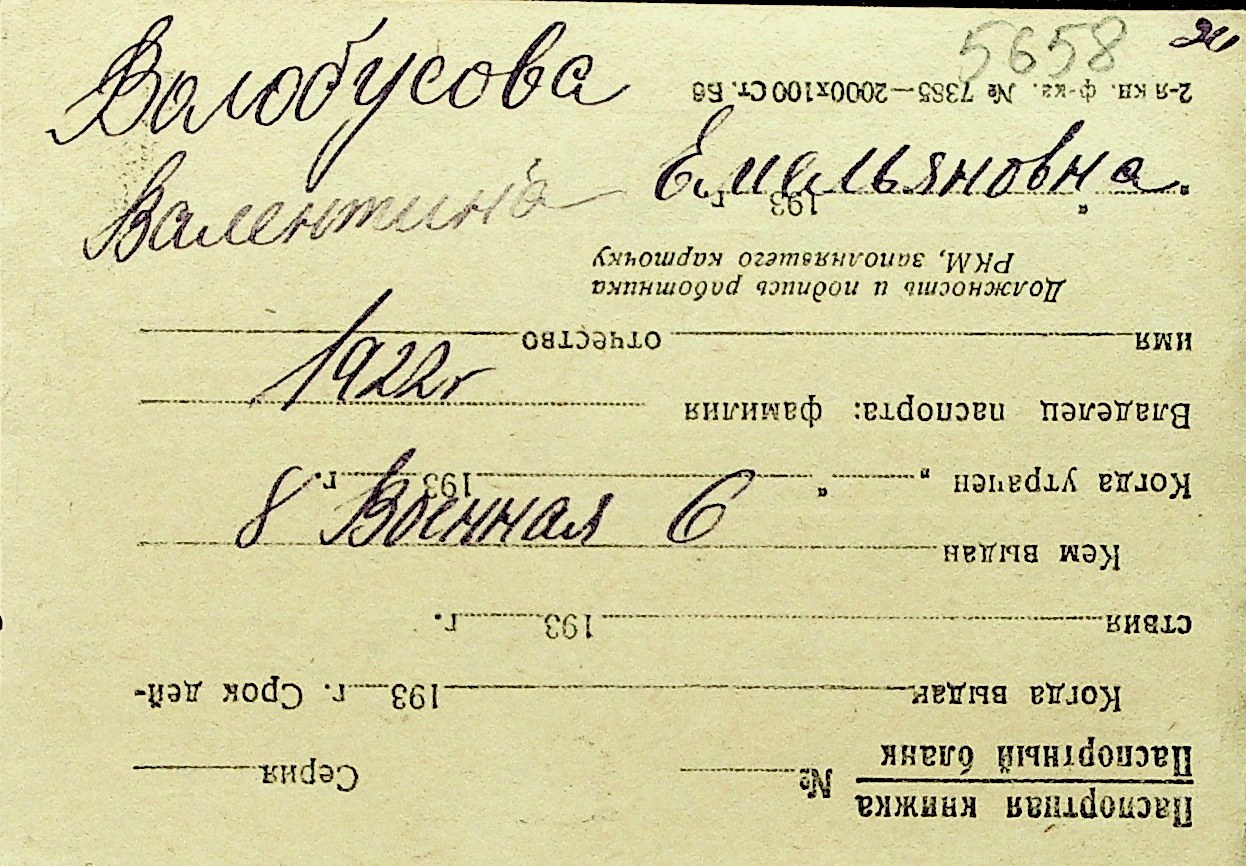 5658
Волобусова
Валентина Емельяновна
1922г
8 Военная 6
Паспортная книжка
Паспортный бланк
№ Серия
Когда выдан 193 г. Срок дей-
ствия 193 г.
Кем выдан
Когда утрачен „ “ 193 г.
Владелец паспорта: фамилия
имя отчество
Должность и подпись работника
РКМ, заполнявшего карточку
„ “ 193 г.
2-я кн. ф-ка. № 7385—2000х100 Ст. Бб